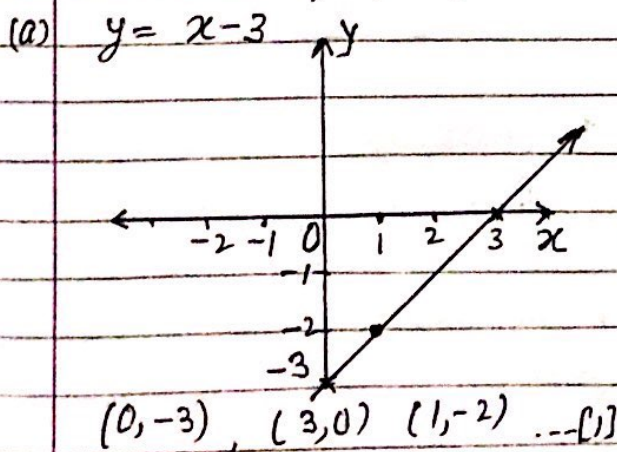 (a) y = x-3
y
-2 -1 0 1 2 3 x
-1
-2
-3
(0,-3), (3,0) (1,-2) ...[1]